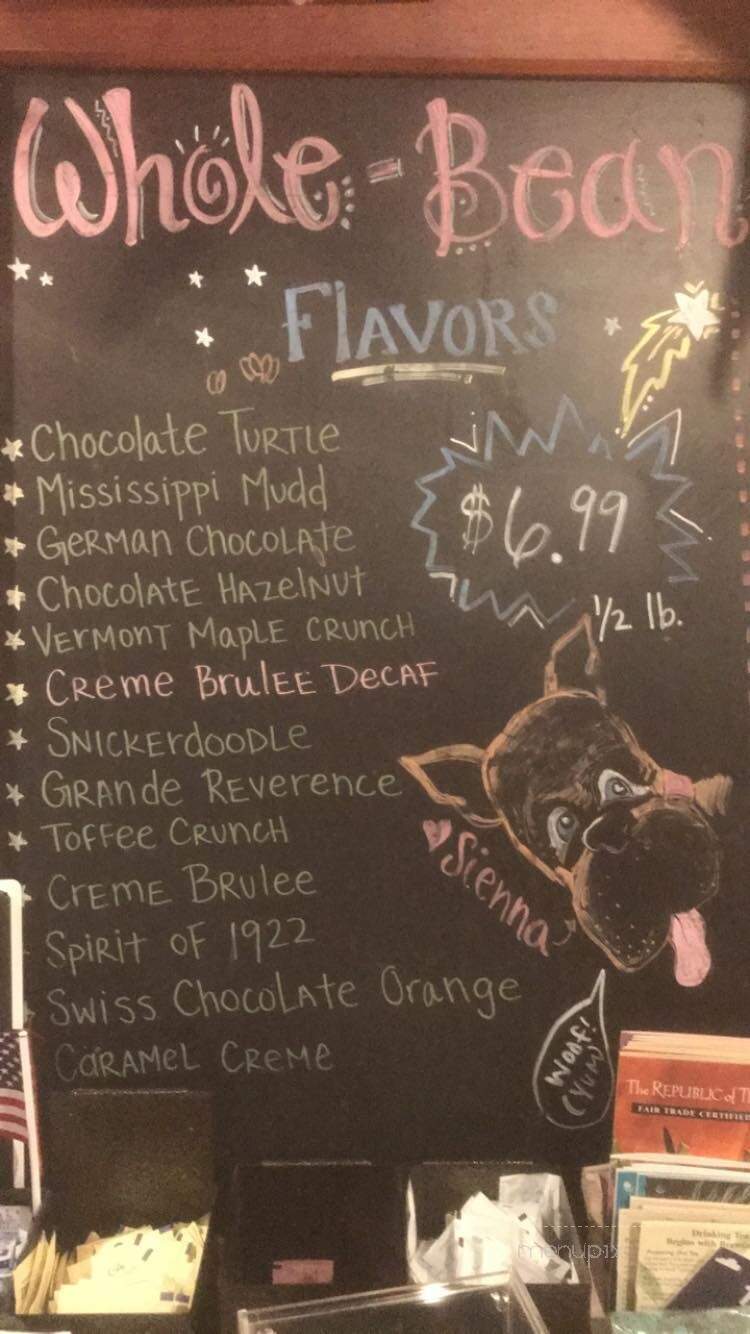 Whole-Bean
Flavors
Chocolate Turtle
Mississippi Mudd
German Chocolate
$6.99
Chocolate Hazelnut
1/2 lb.
Vermont Maple Crunch
Creme Brulee Decaf
Snickerdoodle
Grande Reverence
Toffee Crunch
Sienna
Creme Brulee
Spirit of 1922
Swiss Chocolate Orange
Caramel Creme
Woof!
(Yum)
The REPUBLIC of T
FAIR TRADE CERTIFIED
Drinking Tea
Begins with
menupix